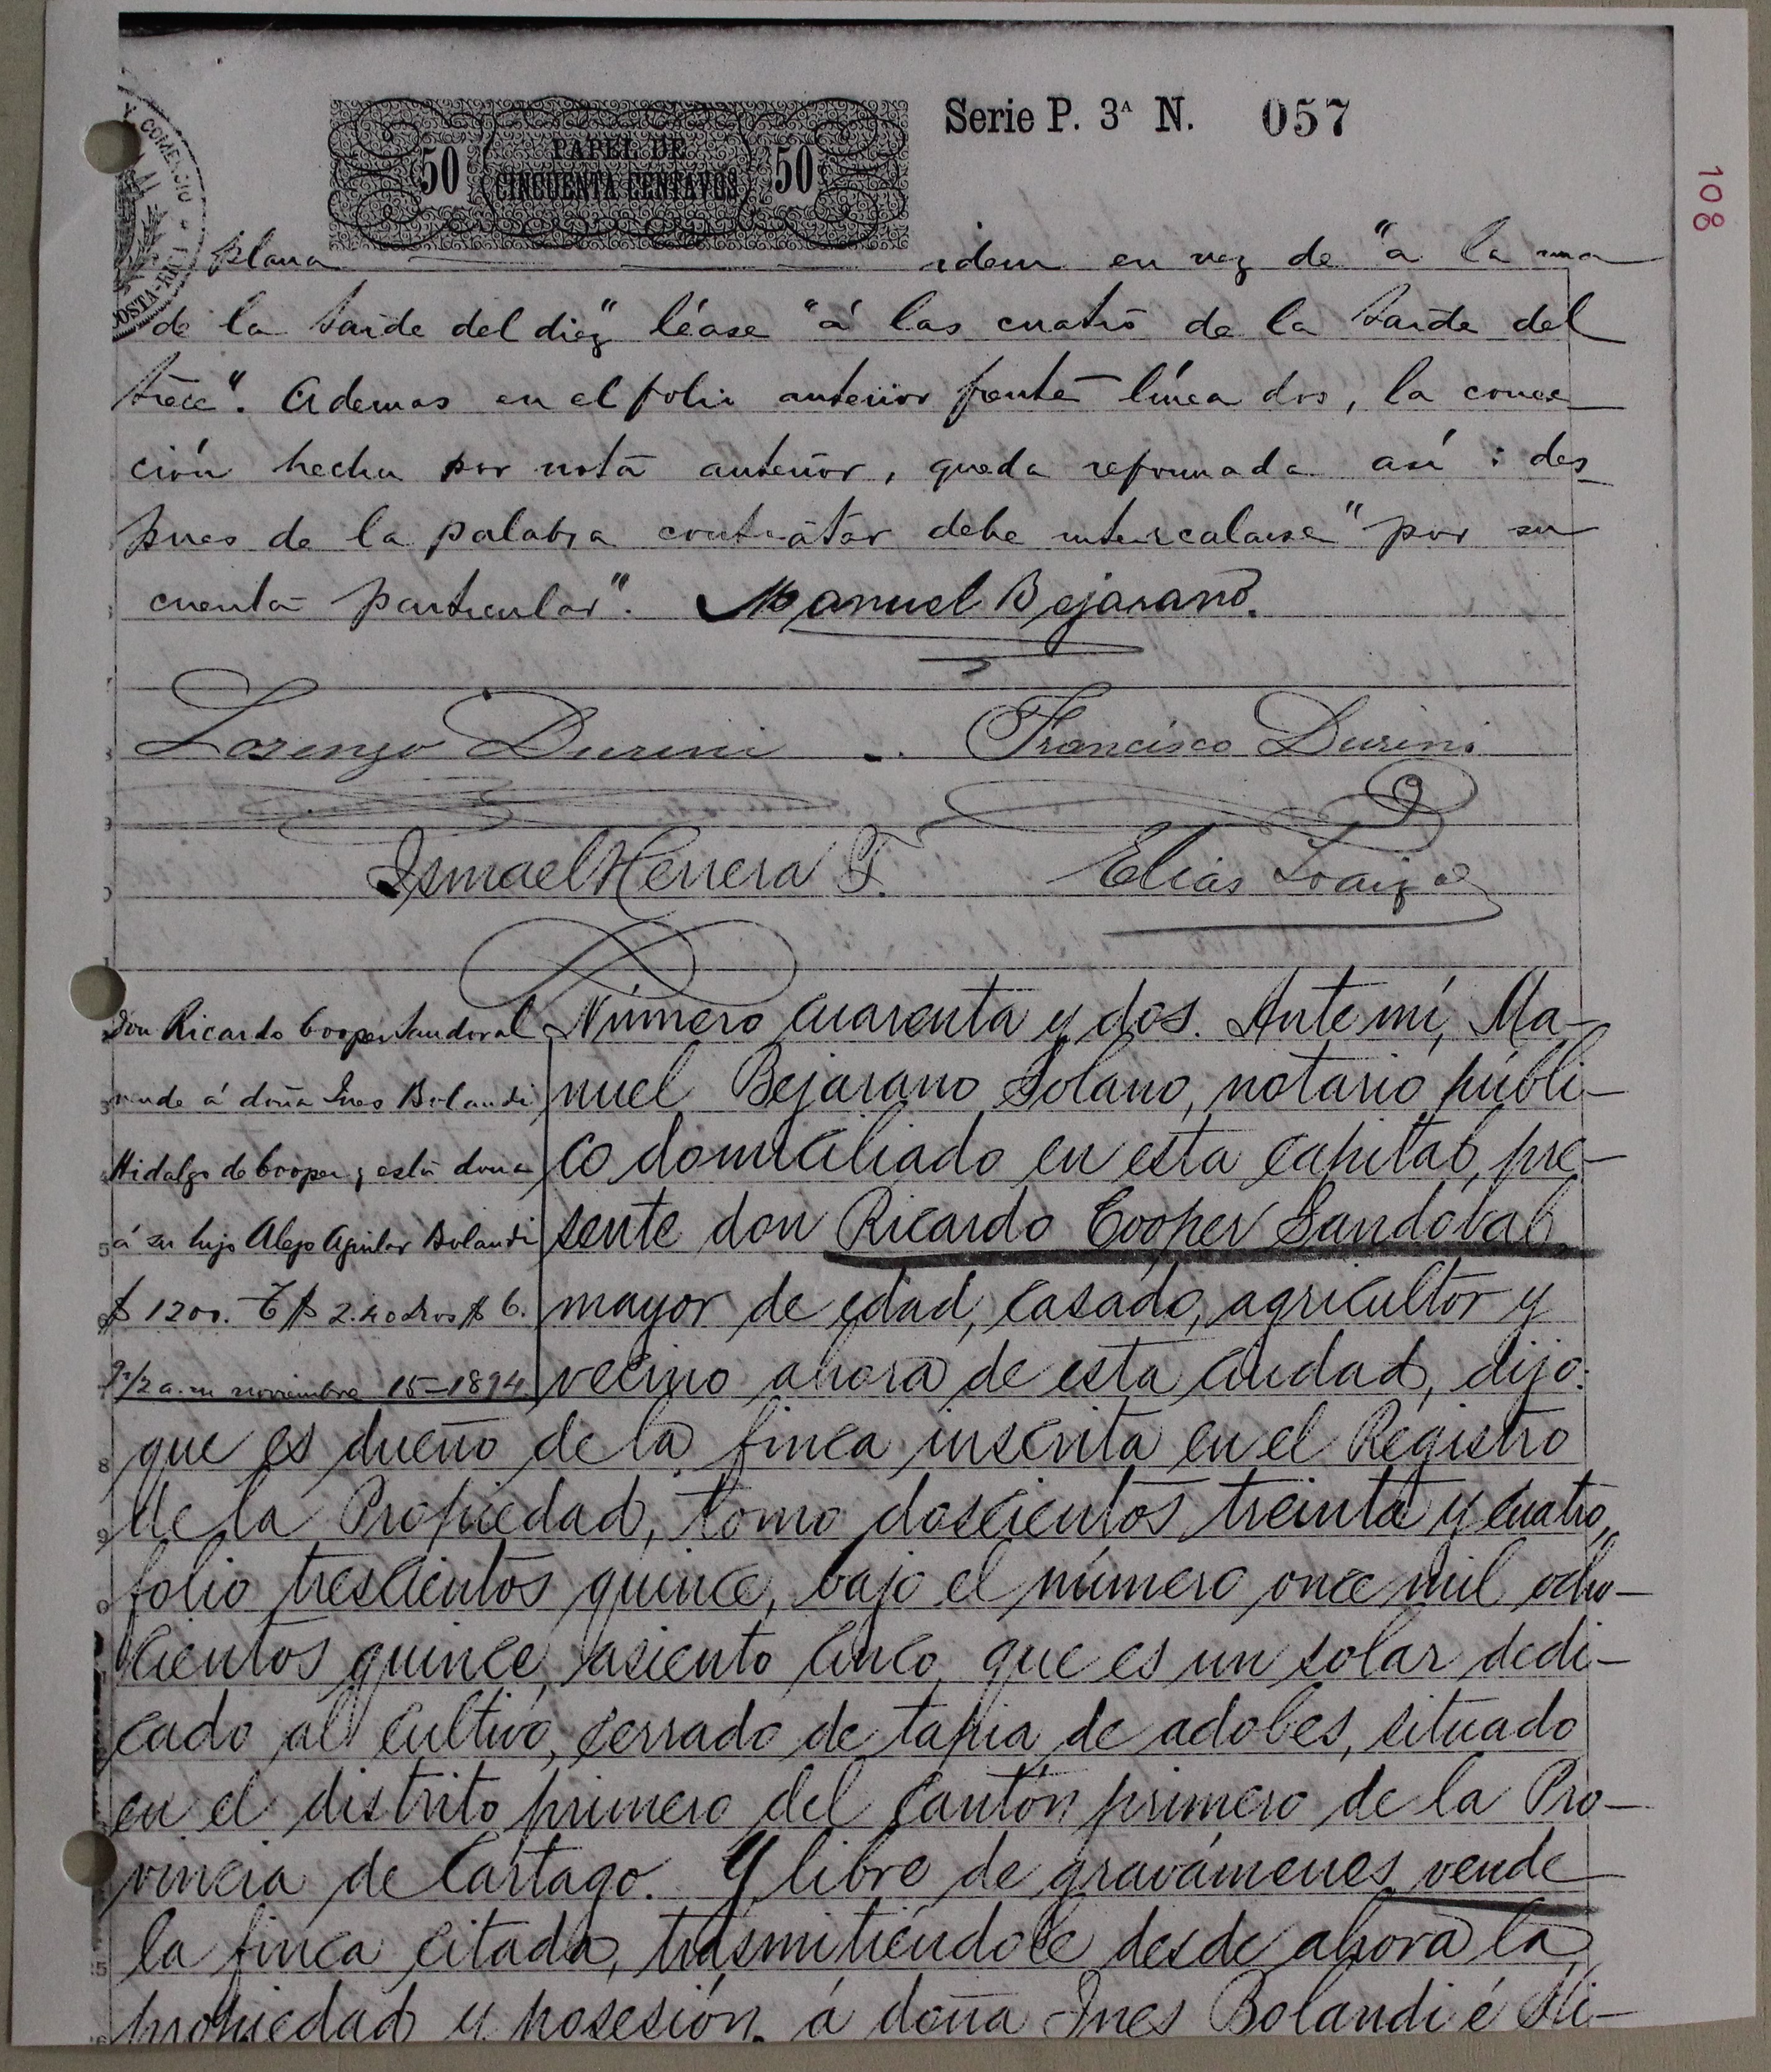 Serie P. 3ᴬ N. 057
108
50 PAPEL DE CINCUENTA CENTAVOS 50
Y COMERCIO
COSTA-RICA
plana idem en vez de "a la una
de la tarde del diez" léase "á las cuatro de la tarde del
trece". Ademas en el folio anterior frente línea dos, la correc
ción hecha por nota anterior, queda reformada así: des
pues de la palabra contratar debe intercalarse "por su
cuenta particular". Manuel Bejarano.
Lorenzo Durini Francisco Durini
Ismael Herrera T. Elias Loaiza
Don Ricardo Cooper Sandoval
vende á doña Ines Bolandi
Hidalgo de Cooper y esta dona
á su hijo Alejo Aguilar Bolandi
$ 1200. T $ 2.40 Dros $ 6.
9 1/2 a.m noviembre 15-1894.
Número cuarenta y dos. Ante mí, Ma-
nuel Bejarano Solano, notario públi-
co domiciliado en esta capital, pre-
sente don Ricardo Cooper Sandoval,
mayor de edad, casado, agricultor y
vecino ahora de esta ciudad, dijo:
que es dueño de la finca inscrita en el Registro
de la Propiedad, tomo doscientos treinta y cuatro,
folio trescientos quince, bajo el número once mil ocho-
cientos quince, asiento cinco, que es un solar dedi-
cado al cultivo, cerrado de tapia de adobes, situado
en el distrito primero del cantón primero de la Pro-
vincia de Cartago. Y libre de gravámenes vende
la finca citada, trasmitiéndole desde ahora la
propiedad y posesión, á doña Ines Bolandi é Hi-